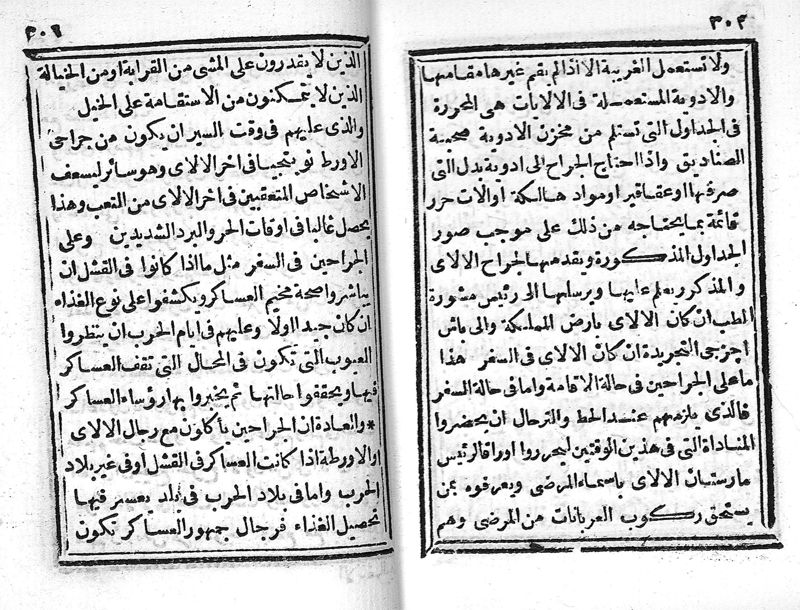 ٣٠٢
ولا تستعمل الغريبة الا اذا لم يقم غيرها مقامها
والادوية المستعملة فى الالايات هى المحررة
فى الجداول التى تستلم من مخزن الادوية صحيبة
الصناديق واذا احتاج الجراح الى ادوية بدل التى
صرفها او عقاقير او مواد هالكة او آلات حرر
قائمة بما يحتاجه من ذلك على موجب صور
الجداول المذكورة ويقدمها لجراح الالاى
والمذكور يعلم عليها ويرسلها الى رئيس مشورة
الطب ان كان الالاى بارض المملكة والى باش
اجزجى التجريدة ان كان الالاى فى السفر هذا
ما على الجراحين فى حالة الاقامة واما فى حالة السفر
فالذى يلزمهم عند الحط والترحال ان يحضروا
المناداة التى فى هذين الوقتين ليحرروا اوراقا لرئيس
مارستان الالاى باسماء المرضى ويعرفوه بمن
يستحق ركوب العربانات من المرضى وهم
٣٠٣
الذين لا يقدرون على المشى من القرابة او من الخيالة
الذين لا يتمكنون من الاستقامة على الخيل
والذى عليهم فى وقت السير ان يكون من جراحى
الاورط نوبتجيا فى اخر الالاى وهو سائر ليسعف
الاشخاص المتعقبين فى اخر الالاى من التعب وهذا
يحصل غالبا فى اوقات الحر والبرد الشديدين وعلى
الجراحين فى السفر مثل ما اذا كانوا فى القشل ان
يباشروا صحة مخيم العساكر ويكشفوا على نوع الغذاء
ان كان جيدا اولا وعليهم فى ايام الحرب ان ينتظروا
العيوب التى تكون فى المحال التى تقف العساكر
فيها ويحققوا حالتها ثم يخبروا بها رؤساء العساكر
* والعادة ان الجراحين ياكلون مع رجال الالاى
او الاورطة اذا كانت العساكر فى القشل او فى غير بلاد
الحرب واما فى بلاد الحرب فى بلد يعسر فيها
تحصيل الغذاء فرجال جمهور العساكر تكون